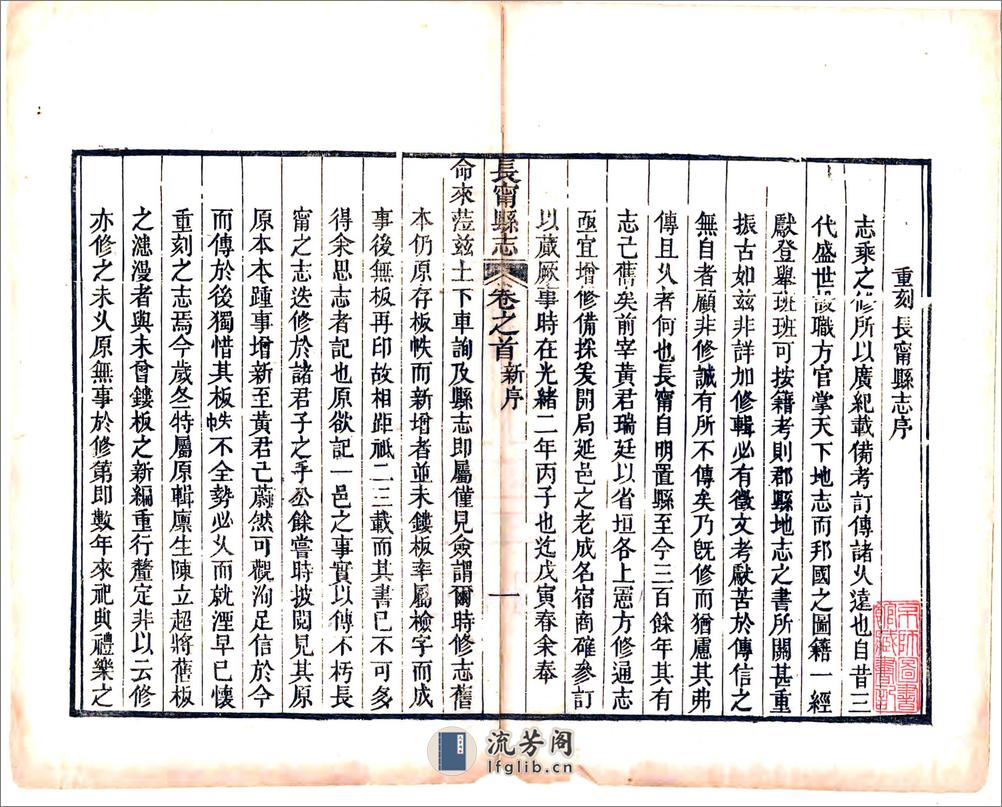 重刻長甯縣志序
志乘之修所以廣紀載備考訂傳諸久遠也自昔三
代盛世設職方官掌天下地志而邦國之圖籍一經
獻登舉班班可按籍考則郡縣地志之書所關甚重
振古如兹非詳加修輯必有徵文考獻苦於傳信之
無自者顧非修誠有所不傳矣乃旣修而猶慮其弗
傳且久者何也長甯自明置縣至今三百餘年其有
志己舊矣前宰黃君瑞廷以省垣各上憲方修通志
亟宜增修備採爰開局延邑之老成名宿商確參訂
以蕆厥事時在光緒二年丙子也迄戊寅春余奉
長甯縣志 卷之首 新序 一
命來蒞兹土下車詢及縣志即屬僅見僉謂爾時修志舊
本仍原存板帙而新增者並未鏤板率屬檢字而成
事後無板再印故相距祗二三載而其書已不可多
得余思志者記也原欲記一邑之事實以傳不朽長
甯之志迭修於諸君子之手公餘嘗時披閱見其原
原本本踵事增新至黃君己蔚然可觀洵足信於今
而傳於後獨惜其板帙不全勢必久而就湮早已懷
重刻之志焉今歲冬特屬原輯廪生陳立超將舊板
之漶漫者與未曾鏤板之新編重行釐定非以云修
亦修之未久原無事於修第即數年來祀典禮樂之
流芳阁
lfglib.cn